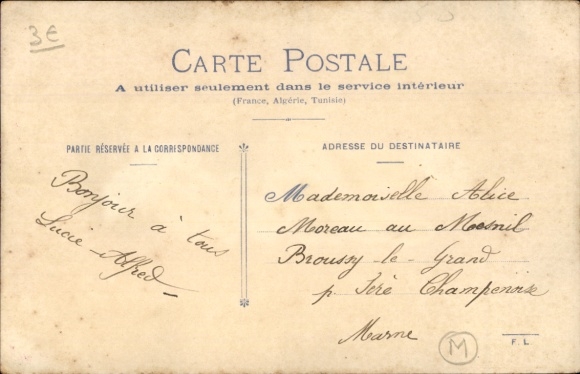 3€
CARTE POSTALE
A utiliser seulement dans le service intérieur
(France, Algérie, Tunisie)
PARTIE RÉSERVÉE A LA CORRESPONDANCE
Bonjour à tous
Lucie - Alfred
ADRESSE DU DESTINATAIRE
Mademoiselle Alice
Moreau au Mesnil
Broussy-le-Grand
p. Fère Champenoise
Marne
M
F. L.